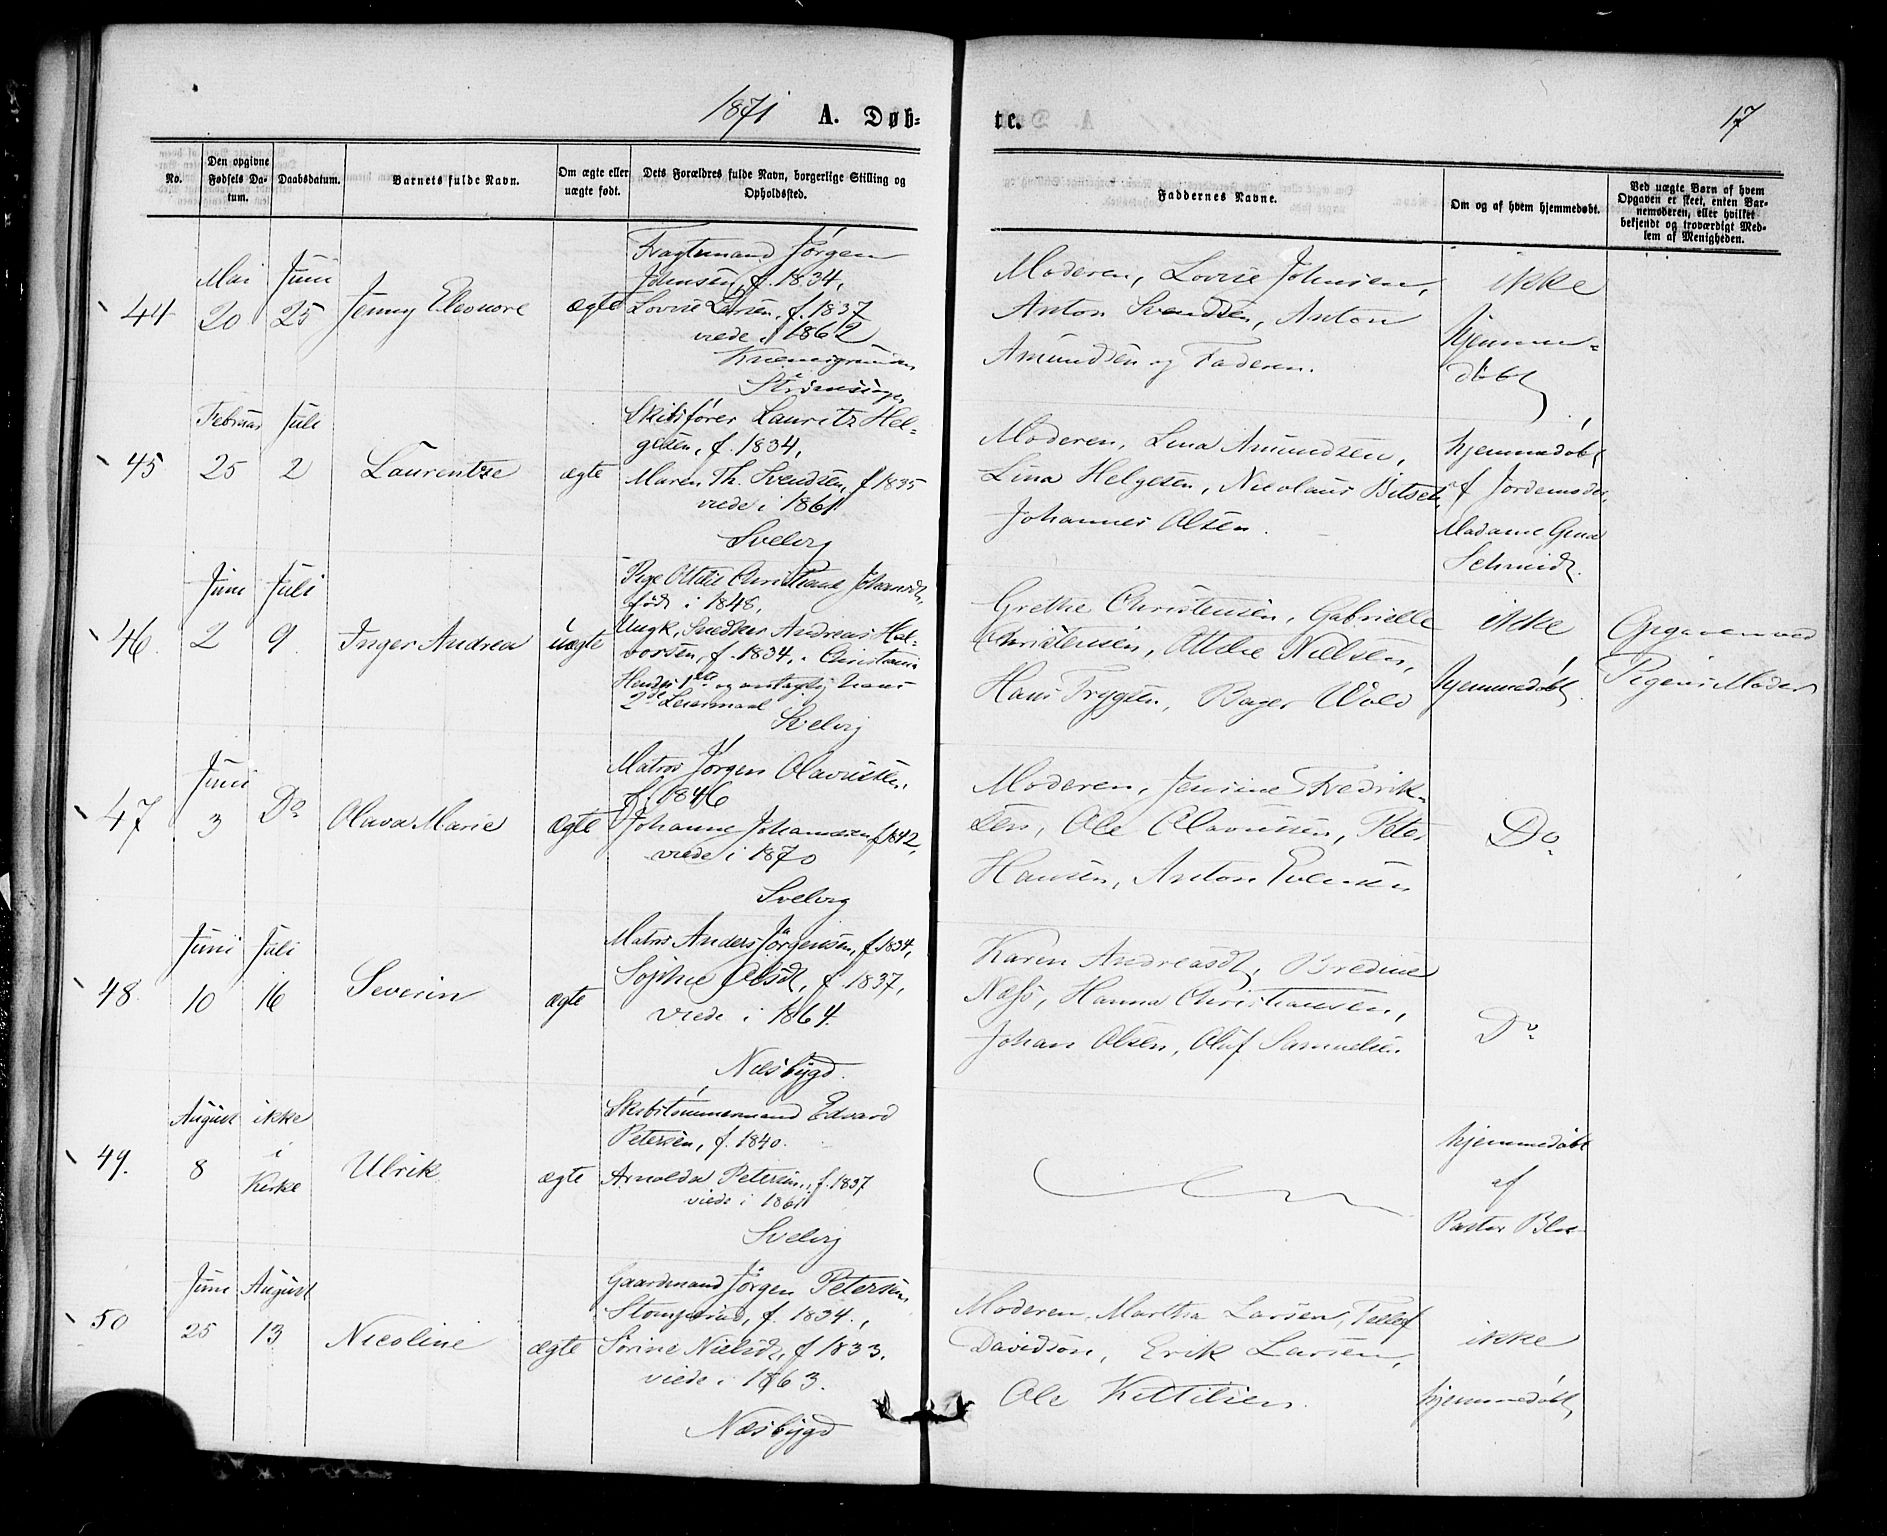 1871 A. Døb- te. 17
No.
Den opgivne Fødsels Datum.
Daabsdatum.
Barnets fulde Navn.
Om ægte eller uægte født.
Dets Forældres fulde Navn, borgerlige Stilling og Opholdssted.
Faddernes Navne.
Om og af hvem hjemmedøbt.
Ved uægte Børn af hvem
Opgaven er skeet, enten Bar-
nemoderen, eller hvilket
bekjendt og troværdigt Med-
lem af Menigheden.
44
Mai
20
Juni
25
Jenny Eleonore
ægte
Fragtemand Jørgen
Johnsen, f. 1834,
Lovise Larsen, f. 1837
viede i 1862
Moderen, Lovise Johnsen,
Anton Svendsen, Anton
Amundsen og Faderen.
ikke
hjemme-
døbt
45
Februar
25
Juli
2
Laurentze
ægte
Skibsfører Lauritz Hel-
gesen, f. 1834,
Maren Th. Svendsen, f 1835
viede i 1861
Svelvig
Moderen, Lina Amundsen,
Lina Helgesen, Nicolaus
Johannes Olsen.
hjemmedøbt
af Jordemoder
Madame
Schmidt.
46.
Juni
2
Juli
9.
Inger Andrea
uægte
Pige Ottilie Christiane
født i 1848,
Ungk. Snedker Andreas Hal-
vorsen, f. 1834, Christiania
Hendes 1ste og hans
2det Leiermaal
Svelvig
Grethe Christensen, Gabrielle
Christensen, Nielsen,
Hans Trygsen, Bager Wold
ikke
hjemmedøbt.
Opgaven ved
Pigens Moder
47
Juni
3
Do
Olava Marie
ægte
Matros Jørgen Olavesen,
f. 1846
Johanne Johannesen f 1842,
viede i 1870
Svelvig
Moderen, Jensine Fredrik-
sen, Ole Olavesen, Peter
Hansen, Anton Evensen
Do
48
Juni
10
Juli
16
Severin
ægte
Matros Anders Jørgensen, f. 1834,
Sophie Olsdt, f. 1837,
viede i 1864.
Næsbygd.
Karen Andreasdt, Bredine
Næss, Hanna Christiansen,
Johan Olsen, Oluf Samuelsen
Do
49.
August
8
ikke
i
Kirke
Ulrik
ægte
Skibstømmermand Edvard
Petersen, f. 1840.
Arnolda Petersen, f. 1837
viede i 1861
Svelvig
hjemmedøbt
af
Pastor
50
Juni
25
August
13
Nicoline
ægte
Gaardmand Jørgen Petersen
Stomperud, f. 1834.,
Sørine Nielsdt, f 1833.
viede i 1863.
Næsbygd
Moderen, Martha Larsen, Tellef
Davidson, Erik Larsen,
Ole Kittilsen.
ikke
hjemmedøbt